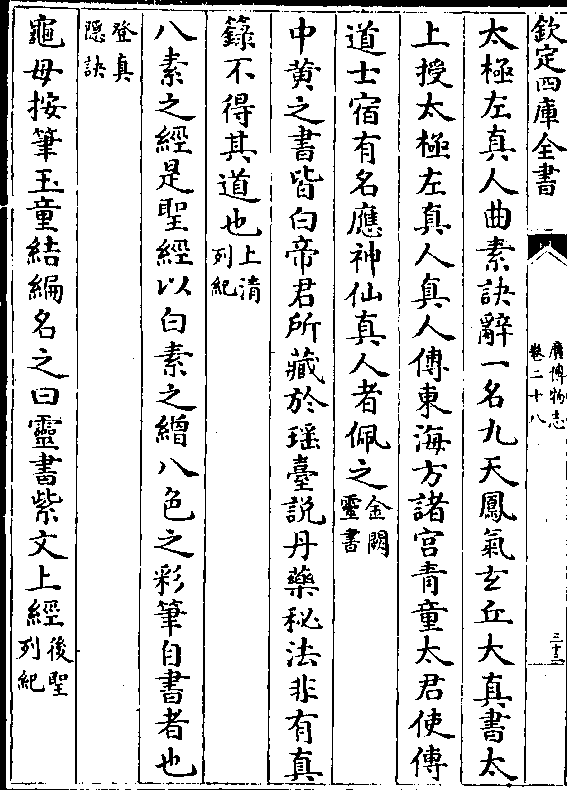 欽定四庫全書
廣博物志
卷二十八
三十三
太極左真人曲素訣辭一名九天鳳氣玄丘大真書太
上授太極左真人真人傳東海方諸宮青童太君使傳
道士宿有名應神仙真人者佩之金闕靈書
中黃之書皆白帝君所藏於瑶臺説丹藥秘法非有真
籙不得其道也上清列紀
八素之經是聖經以白素之繒八色之彩筆自書者也
登真隱訣
龜母按筆玉童結編名之曰靈書紫文上經後聖列紀